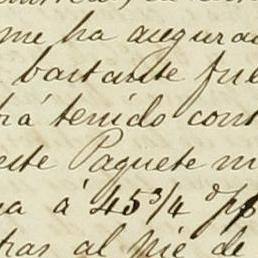 me ha asegura
bastante fue
rá tenido cons
este Paquete m
a á 45 3/4 o/p
tras al pié de